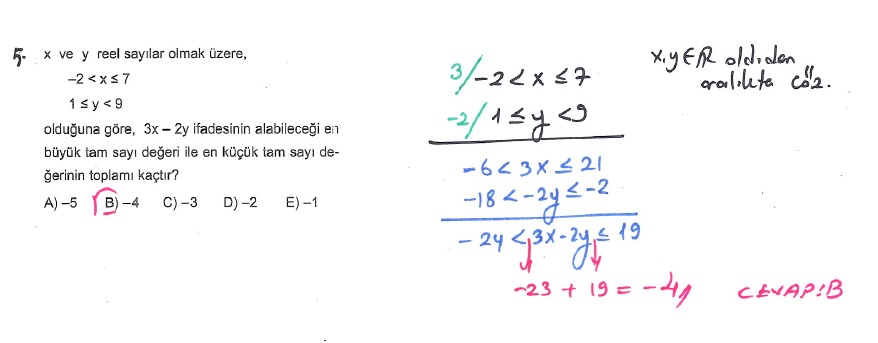 5. x ve y reel sayılar olmak üzere,
–2 < x ≤ 7
1 ≤ y < 9
olduğuna göre, 3x – 2y ifadesinin alabileceği en
büyük tam sayı değeri ile en küçük tam sayı de-
ğerinin toplamı kaçtır?
A) –5 B) –4 C) –3 D) –2 E) –1
3/ -2 < x ≤ 7
-2/ 1 ≤ y < 9
-6 < 3x ≤ 21
-18 < -2y ≤ -2
-24 < 3x-2y ≤ 19
-23 + 19 = -4
CEVAP:B
x,y ∈ R old.dan
aralıkta çöz.